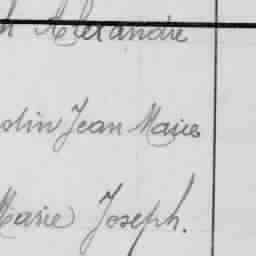 Alexandre
Jean Marie
Marie Joseph.